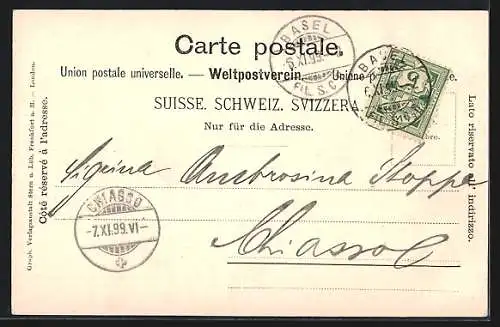 Carte postale.
Union postale universelle. — Weltpostverein. — Unione postale
SUISSE. SCHWEIZ. SVIZZERA.
Nur für die Adresse.
Graph. Verlagsanstalt Stern u. Lith. Frankfurt a. M. — London.
Côté réservé à l'adresse.
Lato riservato all' indirizzo.
BASEL
6.XI.99
FIL. S.C.
BASEL
Sigrina Ambrosina Stoppa
Chiasso
CHIASSO
-7.XI.99.VI-